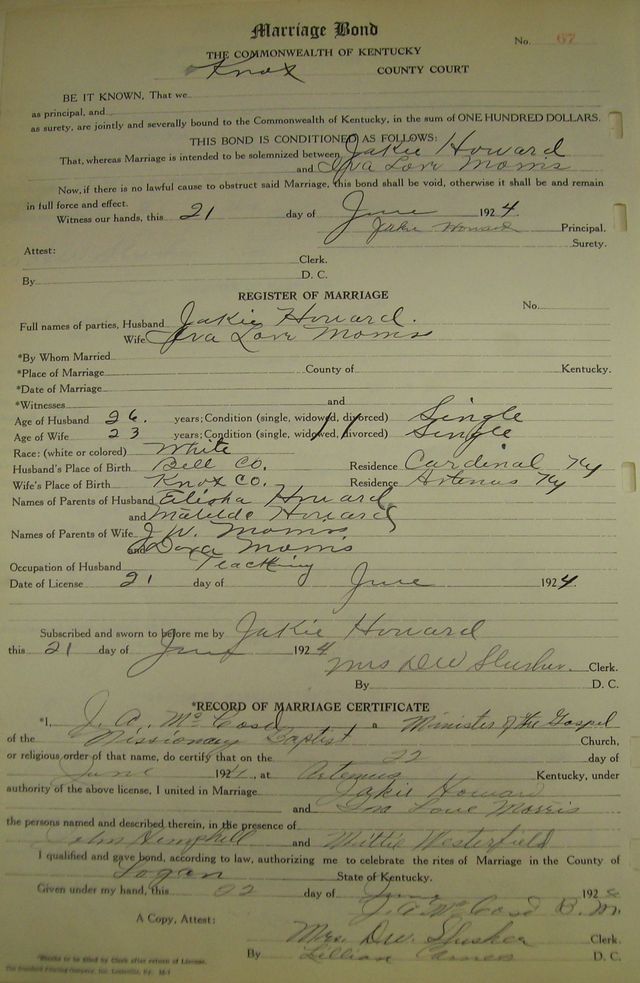 Marriage Bond
No. 67
THE COMMONWEALTH OF KENTUCKY
Knox COUNTY COURT
BE IT KNOWN, That we
as principal, and
as surety, are jointly and severally bound to the Commonwealth of Kentucky, in the sum of ONE HUNDRED DOLLARS.
THIS BOND IS CONDITIONED AS FOLLOWS:
That, whereas Marriage is intended to be solemnized between Jakie Howard
and Iva Love Morris
Now, if there is no lawful cause to obstruct said Marriage, this bond shall be void, otherwise it shall be and remain
in full force and effect.
Witness our hands, this 21 day of June 1924.
Jakie Howard Principal.
Surety.
Attest:
Clerk.
By D. C.
REGISTER OF MARRIAGE
No.
Full names of parties, Husband Jakie Howard.
Wife Iva Love Morris
*By Whom Married
*Place of Marriage County of Kentucky.
*Date of Marriage
*Witnesses and
Age of Husband 26. years; Condition (single, widowed, divorced) Single
Age of Wife 23 years; Condition (single, widowed, divorced) Single
Race: (white or colored) White
Husband's Place of Birth Bell Co. Residence Cardinal Ky
Wife's Place of Birth Knox Co. Residence Artemus Ky
Names of Parents of Husband Elisha Howard
and Matilda Howard
Names of Parents of Wife J. W. Morris
and Dora Morris
Occupation of Husband Teaching
Date of License 21 day of June 1924.
Subscribed and sworn to before me by Jakie Howard
this 21 day of June 1924
Mrs DW Slusher. Clerk.
By D. C.
*RECORD OF MARRIAGE CERTIFICATE
*I, J. A. a Minister of the Gospel
of the Missionary Baptist Church,
or religious order of that name, do certify that on the 22 day of
June 1924, at Artemus Kentucky, under
authority of the above license, I united in Marriage Jakie Howard
and Iva Love Morris
the persons named and described therein, in the presence of
John Hemphill and Mittie Westerfield
I qualified and gave bond, according to law, authorizing me to celebrate the rites of Marriage in the County of
Logan State of Kentucky.
Given under my hand, this 22 day of June 192
J. A. B. M.
A Copy, Attest:
Mrs. D.W. Slusher Clerk.
By Lillian D. C.
*Blanks to be filled by Clerk after return of License.
The Standard Printing Company, Inc. Louisville, Ky.